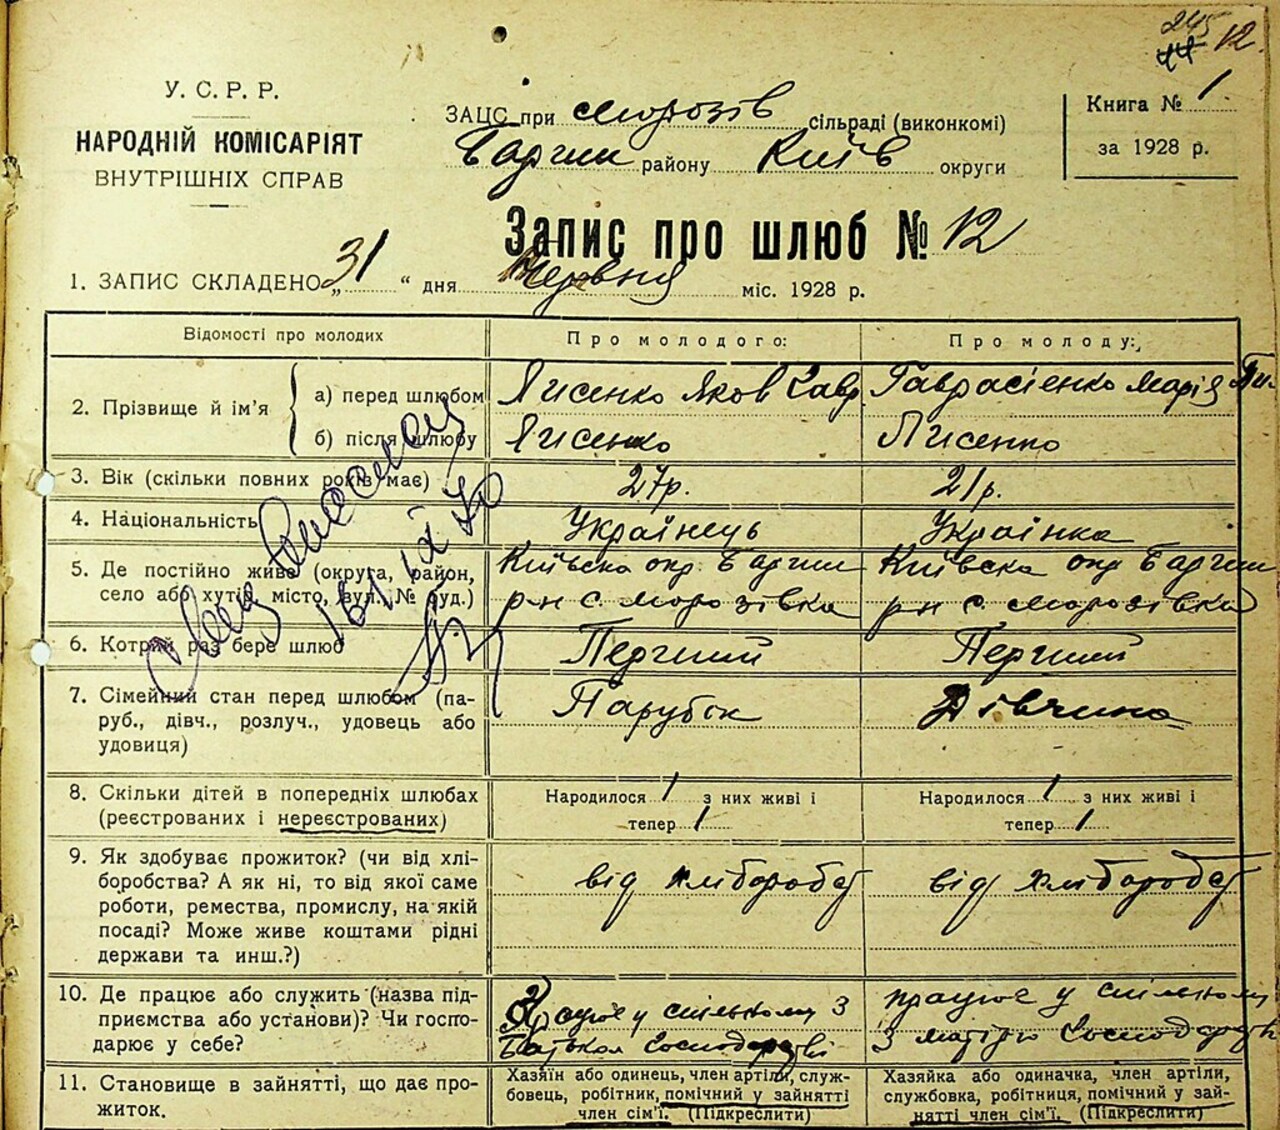 245
44 12.
У. С. Р. Р.
НАРОДНІЙ КОМІСАРІЯТ
ВНУТРІШНІХ СПРАВ
ЗАЦС при Морозів сільраді (виконкомі)
Бариш району Київ округи
Книга № 1
за 1928 р.
Запис про шлюб № 12
1. ЗАПИС СКЛАДЕНО „31“ дня Червня міс. 1928 р.
Відомості про молодих
Про молодого:
Про молоду:
2. Прізвище й ім'я
а) перед шлюбом Лисенко Яков Савр Гаврасієнко Марія Пи-
б) після шлюбу Лисенко Лисенко
3. Вік (скільки повних років має) 27р. 21р.
4. Національність Українець Українка
5. Де постійно живе (округа, район, Київска окр. Бариш Київска окр Бариш
село або хутір, місто, вул., № буд.) р-н с. Морозівка р-н с. Морозівка
6. Котрий раз бере шлюб Перший Перший
7. Сімейний стан перед шлюбом (па- Парубок Дівчина
руб., дівч., розлуч., удовець або
удовиця)
8. Скільки дітей в попередніх шлюбах Народилося / з них живі і Народилося / з них живі і
(реєстрованих і нереєстрованих) тепер / тепер /
9. Як здобуває прожиток? (чи від хлі- від хліборобст від хліборобст
боробства? А як ні, то від якої саме
роботи, ремества, промислу, на якій
посаді? Може живе коштами рідні
держави та инш.?)
10. Де працює або служить (назва під- Працює у спільному з працює у спільному
приємства або установи)? Чи госпо- Батьком Господарстві з матірю Господарстві
дарює у себе?
11. Становище в зайнятті, що дає про-
житок.
Хазяїн або одинець, член артіли, служ-
бовець, робітник, помічний у зайнятті
член сім'ї. (Підкреслити)
Хазяйка або одиначка, член артіли,
службовка, робітниця, помічний у зай-
нятті член сім'ї. (Підкреслити)